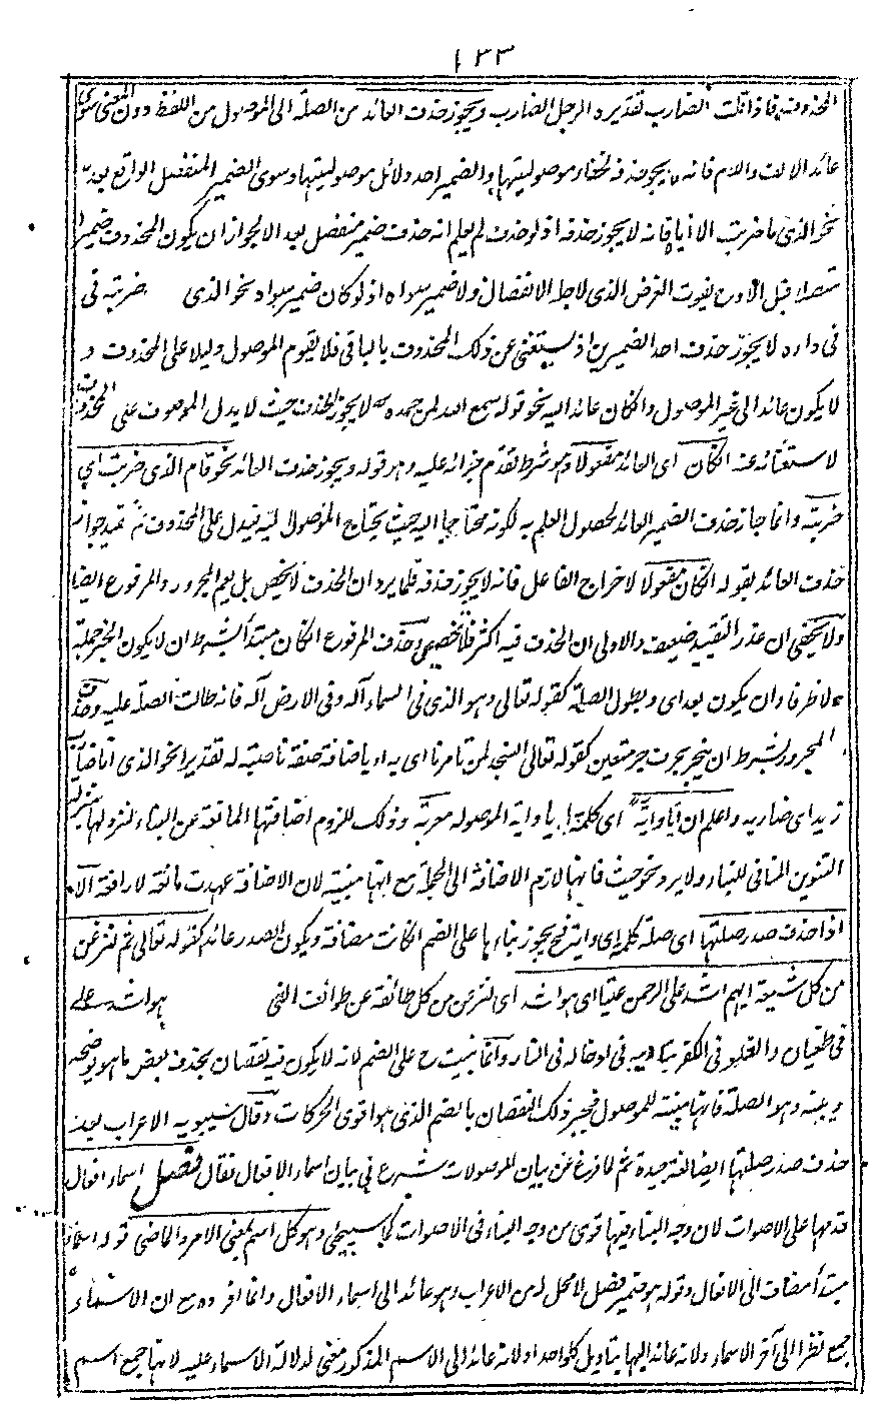 ١٣٣
المحذوف فاذا قلت الضارب تقديره الرجل الضارب ويجوز حذف العائد من الصلة الى الموصول من اللفظ دون المعنى سوى
عائد الالف واللام فانه لا يجوز حذفه لخفاء موصوليتها والضمير احد دلائل موصوليتها وسوى الضمير المنفصل الواقع بعد
نحو الذى ما ضربت الا اياه فانه لا يجوز حذفه اذ لو حذف لم يعلم انه حذف ضمير منفصل بعد الا لجواز ان يكون المحذوف ضميرا
متصلا قبل الا وح يفوت الغرض الذى لاجله الانفصال ولا ضمير سواه اذ لو كان ضمير سواه نحو الذى ضربته فى
فى داره لا يجوز حذف احد الضميرين اذ يستغنى عن ذلك المحذوف بالباقى فلا يقوم الموصول دليلا على المحذوف و
لا يكون عائدا الى غير الموصول وان كان عائدا اليه نحو قوله سمع الله لمن حمده لا يجوز الحذف حيث لا يدل الموصوف على المحذوف
لاستغنائه عنه ان كان اى العائد مفعولا وهو شرط تقدم جزائه عليه وهو قوله ويجوز حذف العائد نحو قام الذى ضربت اى
ضربته وانما جاز حذف الضمير العائد لحصول العلم به لكونه محتاجا اليه حيث يحتاج الموصول اليه فيدل على المحذوف ثم تقييد جواز
حذف العائد بقوله ان كان مفعولا لاخراج الفاعل فانه لا يجوز حذفه فلا يرد ان الحذف لا يخص بل يعم المجرور والمرفوع ايضا
ولا يخفى ان عذر التقييد ضعيف والاولى ان الحذف فيه اكثر فلا تخصيص وحذف المرفوع ان كان مبتدأ بشرط ان لا يكون الخبر جملة
ولا ظرفا وان يكون بعد اى وبطول الصلة كقوله تعالى وهو الذى فى السماء اله وفى الارض اله فانه طالت الصلة عليه وحذف
المجرور بشرط ان ينجر بحرف جر متعين كقوله تعالى انسجد لما تأمرنا اى به او باضافة صفة ناصبة له تقديرا نحو الذى انا ضارب
زيد اى ضاربه واعلم ان ايا واية اى كلمة ايا واية الموصولة معربة وذلك للزوم اضافتها المانعة عن البناء لنزولها منزلة
التنوين المنافى للبناء ولا يرد نحو حيث فانها لازم الاضافة الى الجملة مع انها مبنية لان الاضافة عهدت مانعة لا رافعة الا
اذا حذف صدر صلتها اى صلة كلمة اى واية فح يجوز بناءها على الضم ان كانت مضافة ويكون الصدر عائدا كقوله تعالى ثم لننزعن
من كل شيعة ايهم اشد على الرحمن عتيا اى هو اشد اى لننزعن من كل طائفة عن طوائف التى هو اشد على
فى طغيان والغلو فى الكفر فى ادخاله فى النار وانما بنيت ح على الضم لانه لا يكون فيه نقصان بحذف بعض ما هو يوضحه
ويبينه وهو الصلة فانها مبينة للموصول فجبر ذلك النقصان بالضم الذى هو اقوى الحركات وقال سيبويه الاعراب بعد
حذف صدر صلتها ايضا لغة جيدة ثم لما فرغ عن بيان الموصولات شرع فى بيان اسماء الافعال فقال فصل اسماء افعال
قدمها على الاصوات لان وجه البناء فيها قوى من وجه البناء فى الاصوات كما سيجئ وهو كل اسم بمعنى الامر والماضى قوله اسماء
مبتدأ مضاف الى الافعال وقوله هو ضمير فصل لا محل له من الاعراب وهو عائد الى اسماء الافعال وانما افرده مع ان الاسماء
جمع نظرا الى آخر الاسماء ولانه عائد اليها بتأويل كل واحد او لانه عائد الى الاسم المذكور معنى لدلالة الاسماء عليه لانها جمع اسم